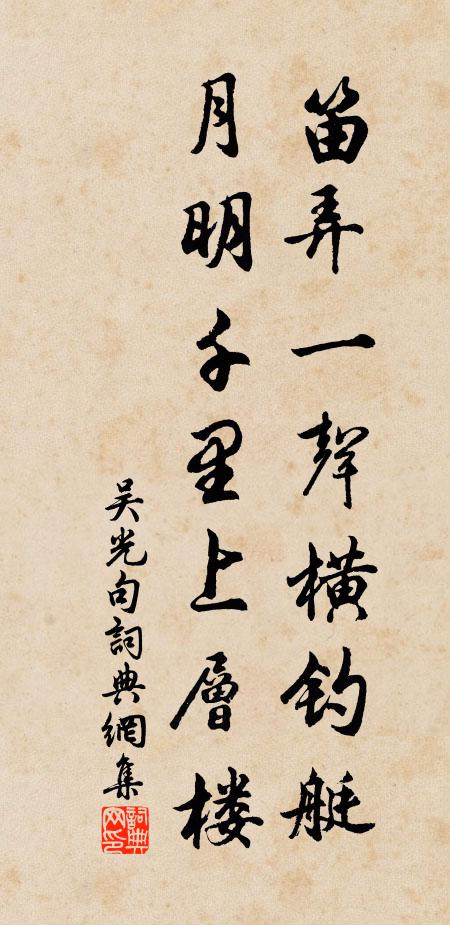 笛弄一聲橫釣艇
月明千里上層楼
吴光句詞典網集
詞典网印